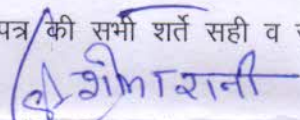 पत्र की सभी शर्ते सही व
शीला रानी